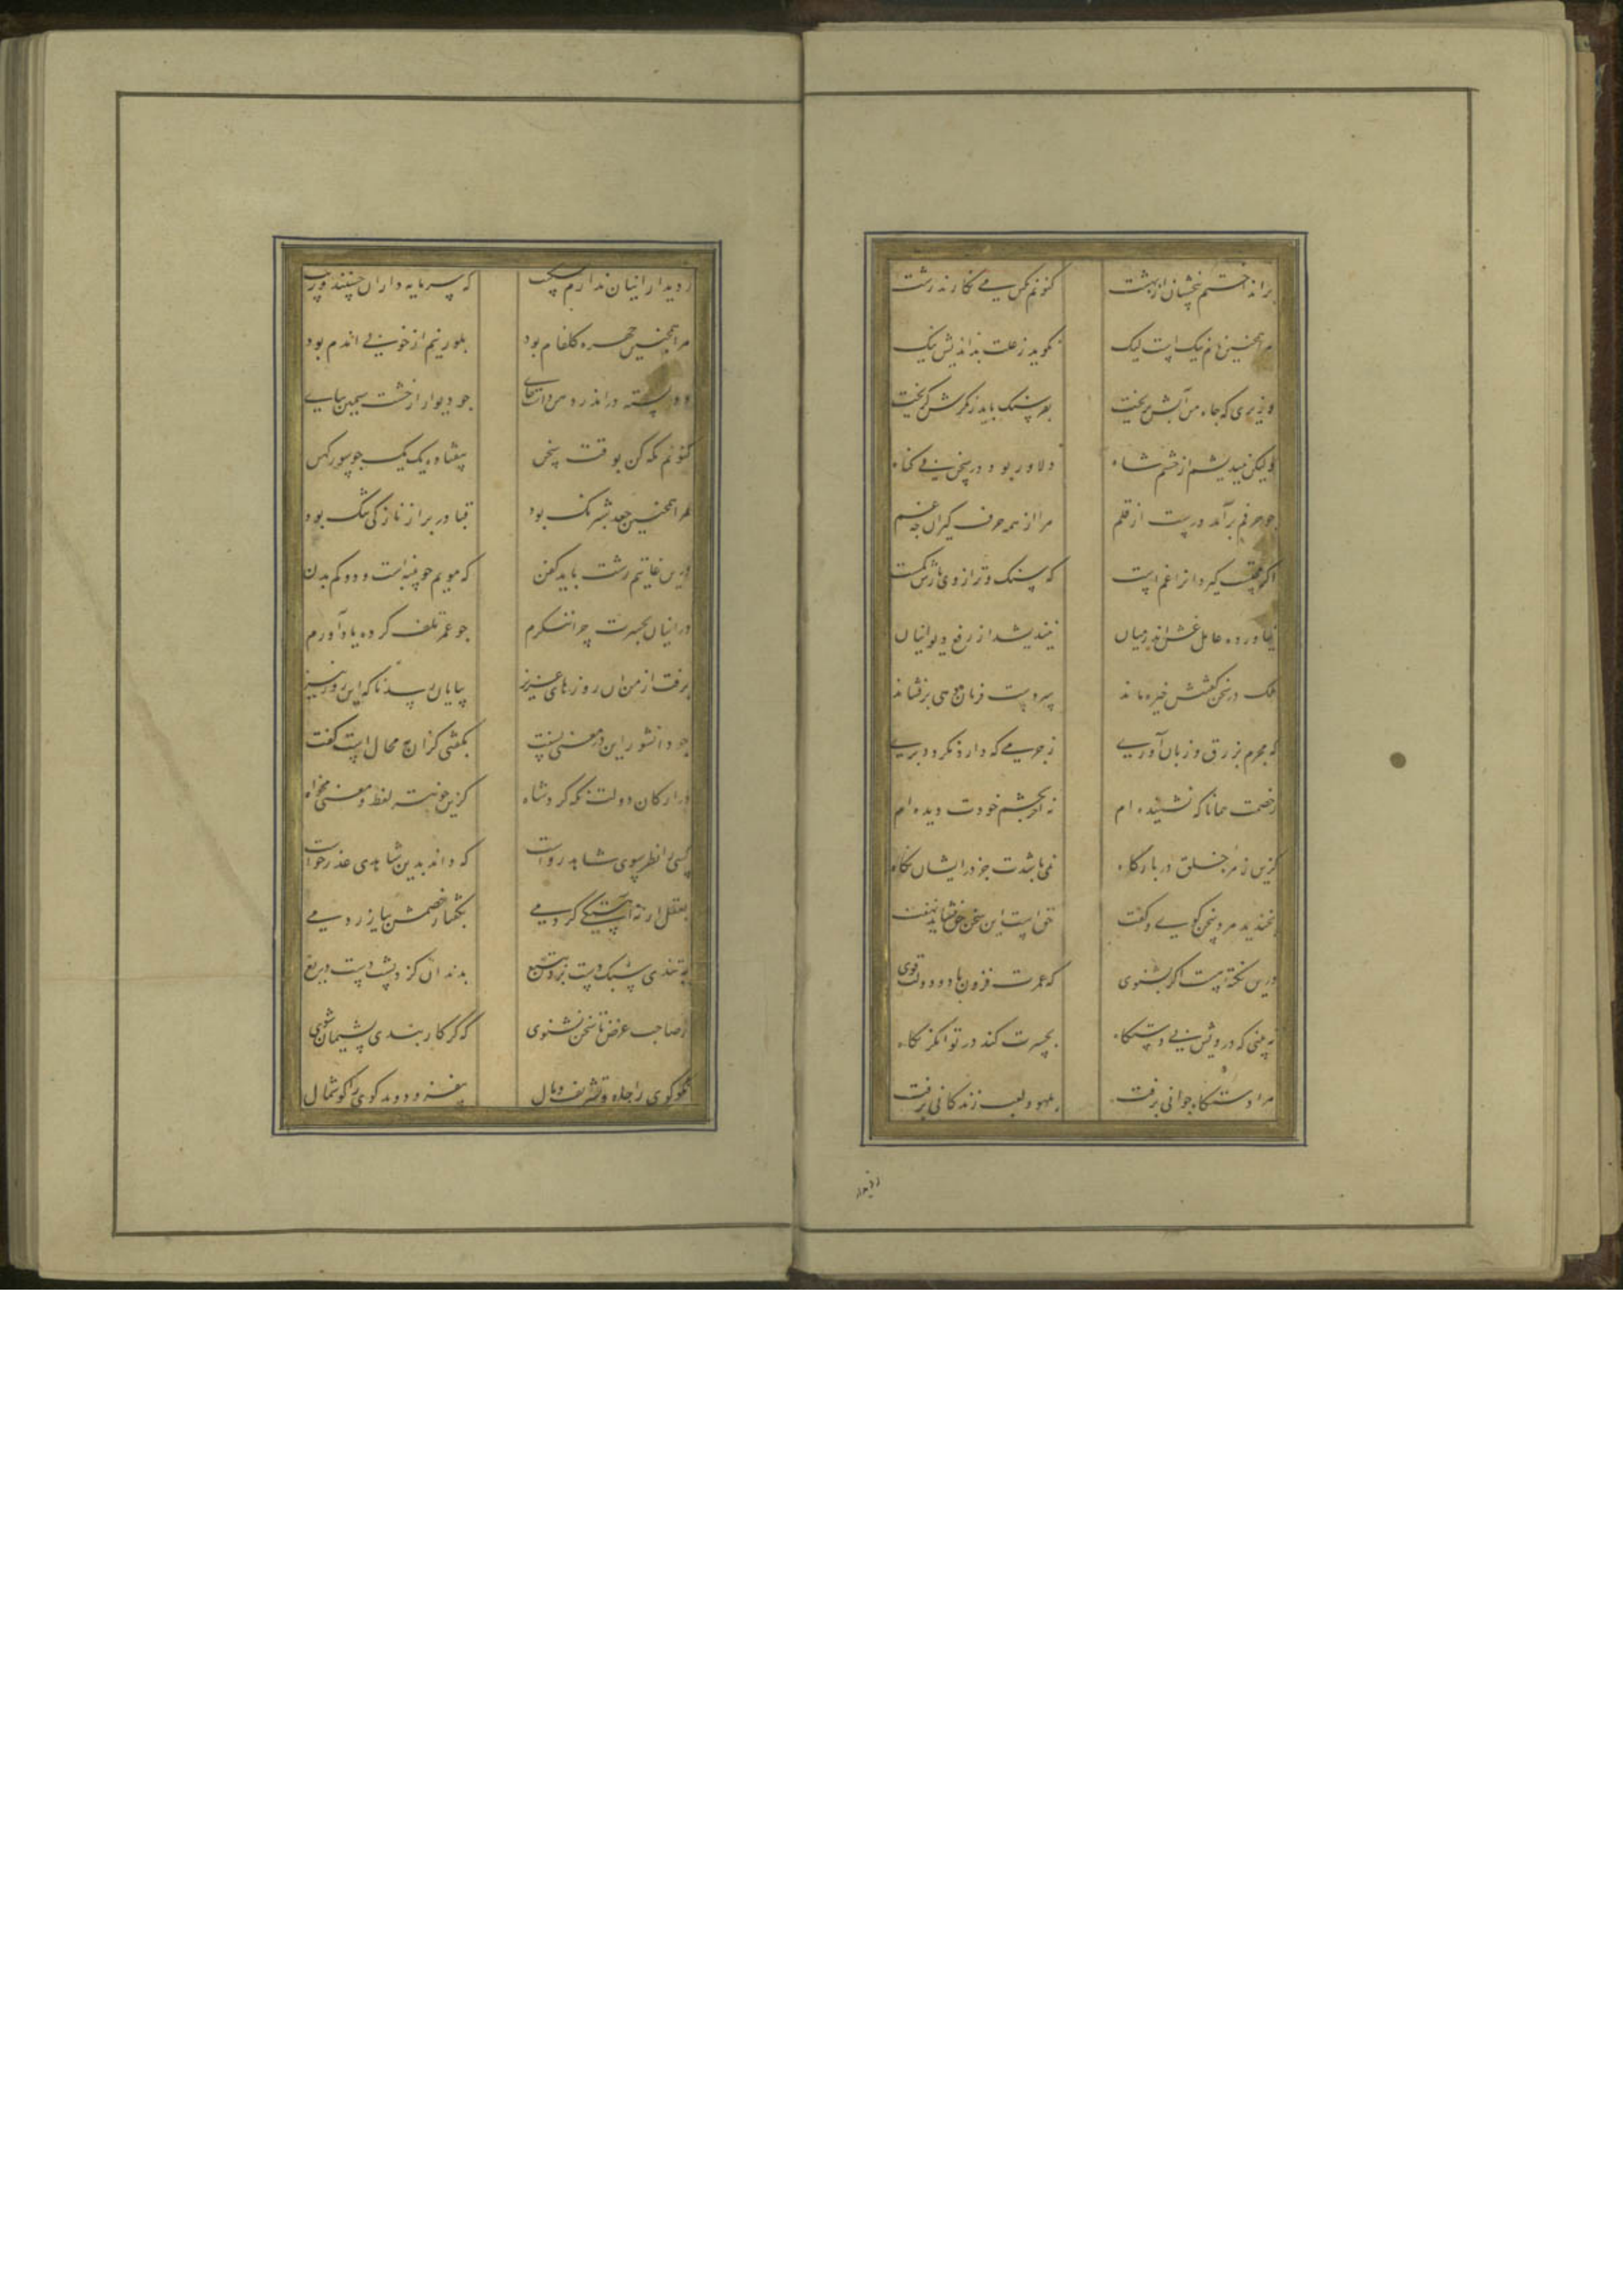 برانداختم بیخشان از بهشت کنونم بکین می نکارند زشت
مرا همچنین نام نیک است لیک نکوید ز علت بداندیش نیک
وزیری که جاه من آبش بریخت بفرسنک باید ز مکرش کریخت
ولیکن نیندیشم از خشم شاه دلاور بود در سخن بی کناه
چو حرفم برآمد درست از قلم مرا از همه حرف کیران چه غم
اکر محتسب کیرد انرا غم است که سنک و ترازوی بارش کمست
نیاورده عامل غش اندر میان نیندیشد از رفع دیوانیان
ملک در سخن کفتنش خیره ماند سر دست فرمان دهی برفشاند
که مجرم بزرق و زبان آوری ز جرمی که دارد نکردد بری
ز خصمت همانا که نشنیده ام نه آخر بچشم خودت دیده ام
کزین زمره خلق در بارکاه نمی باشدت جز در ایشان نکاه
بخندید مرد سخن کوی و کفت حق است این سخن حق نشاید نهفت
درین نکتهٔ هست اکر بشنوی که عمرت فزون باد و دولت قوی
نه بینی که درویش بی دستکاه بحسرت کند در توانکر نکاه
مرا دستکاه جوانی برفت بلهو و لعب زندکانی برفت
ز دیدار
ز دیدار اینان ندارم شکیب که سرمایه داران حسنند و زیب
مرا همچنین چهره کلفام بود بلورینم از خوبی اندام بود
دو رسته درم در دهن داشت جای چو دیوار از خشت سیمین بپای
کنونم نکه کن بوقت سخن بیفتاده یک یک چو سور کهن
مرا همچنین جعد شبرنک بود قبا در بر از نازکی تنک بود
درین غایتم رشت باید کفن که مویم چو پنبه است و دوکم بدن
در اینان بحسرت چرا ننکرم چو عمر تلف کرده یاد آورم
برفت از من ان روزهای عزیز بپایان رسد ناکه این روز نیز
چو دانشور این در معنی بسفت بکفتی کزان به محال است کفت
در ارکان دولت نکه کرد شاه کزین خوبتر لفظ و معنی مخواه
کسی را نظر سوی شاهد رواست که داند بدین شاهدی عذر خواست
بعقل ار نه آهستکی کردمی بکفتار خصمش بیازردمی
به تندی سبک دست بردن بتیغ بدندان کزد پشت دست دریغ
ز صاحب غرض تا سخن نشنوی که کر کار بندی پشیمان شوی
نکوکوی را جاه و تشریف و مال بیفزود و بدکوی را کوشمال